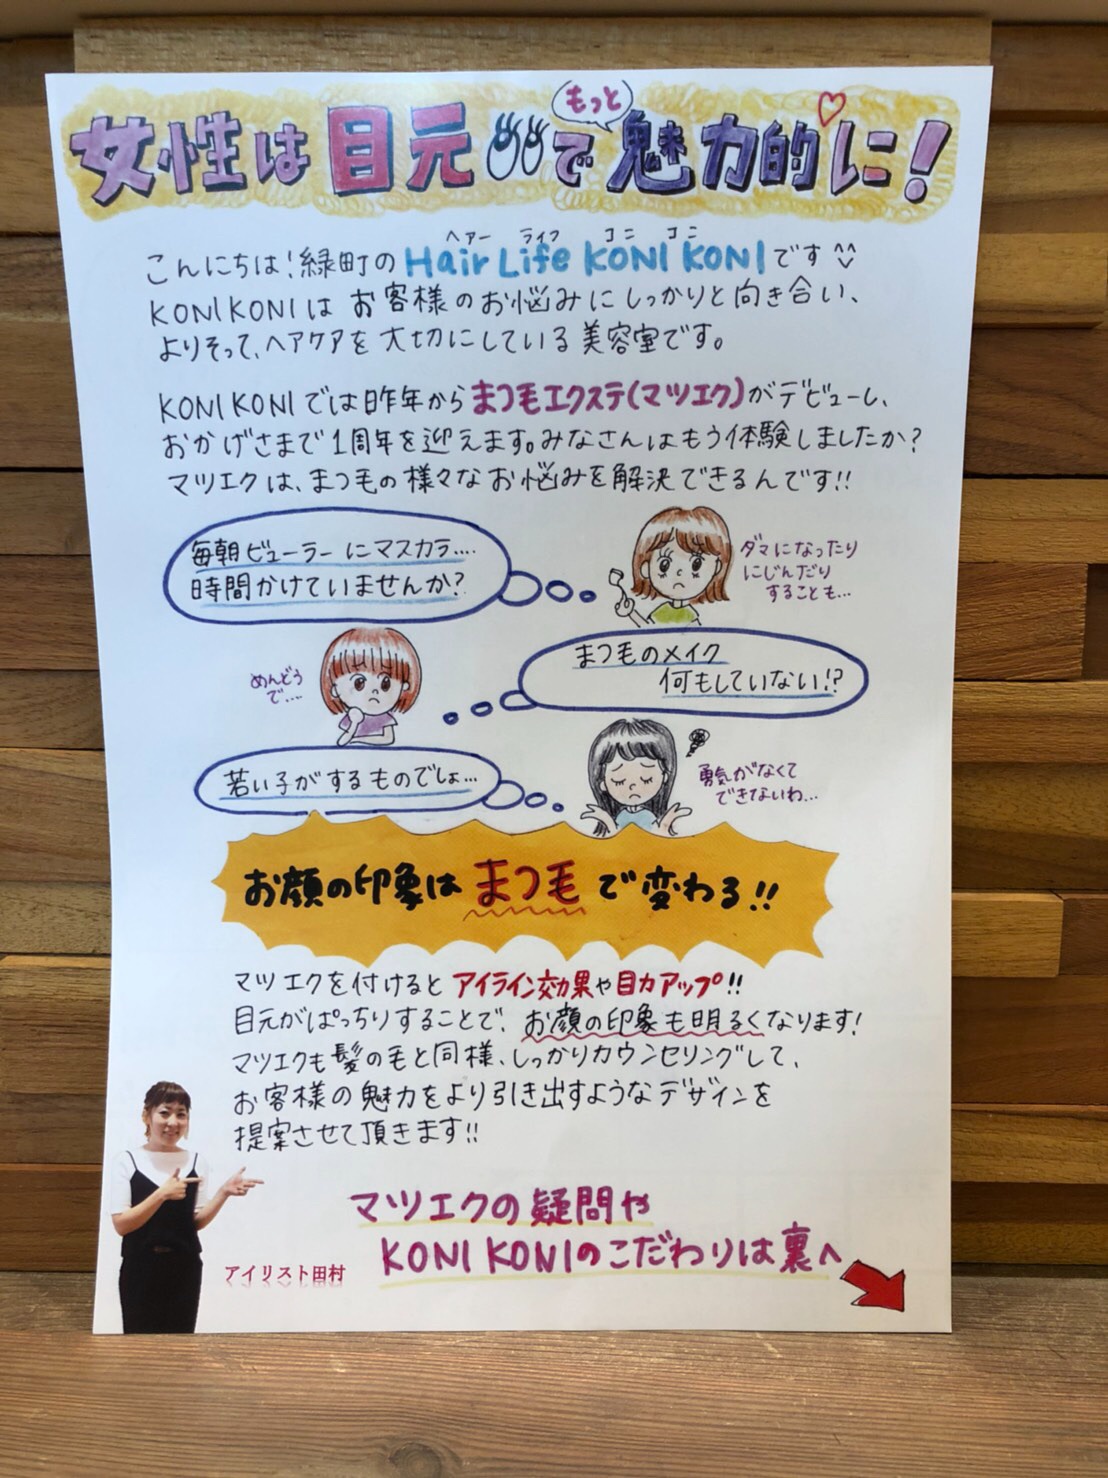 女性は目元でもっと魅力的に!
こんにちは!緑町のHair Life KONI KONIです^^
ヘアー ライフ コニ コニ
KONI KONIは お客様のお悩みにしっかりと向き合い、
よりそって、ヘアケアを大切にしている美容室です。
KONI KONIでは昨年からまつ毛エクステ(マツエク)がデビューし、
おかげさまで1周年を迎えます。みなさんはもう体験しましたか?
マツエクは、まつ毛の様々なお悩みを解決できるんです!!
毎朝ビューラーにマスカラ....
時間かけていませんか?
ダマになったり
にじんだり
することも...
まつ毛のメイク
何もしていない!?
めんどう
で....
若い子がするものでしょ...
勇気がなくて
できないわ...
お顔の印象はまつ毛で変わる!!
マツエクを付けるとアイライン効果や目力アップ!!
目元がぱっちりすることで、お顔の印象も明るくなります!
マツエクも髪の毛と同様、しっかりカウンセリングして、
お客様の魅力をより引き出すようなデザインを
提案させて頂きます!!
マツエクの疑問や
KONI KONIのこだわりは裏へ
アイリスト田村